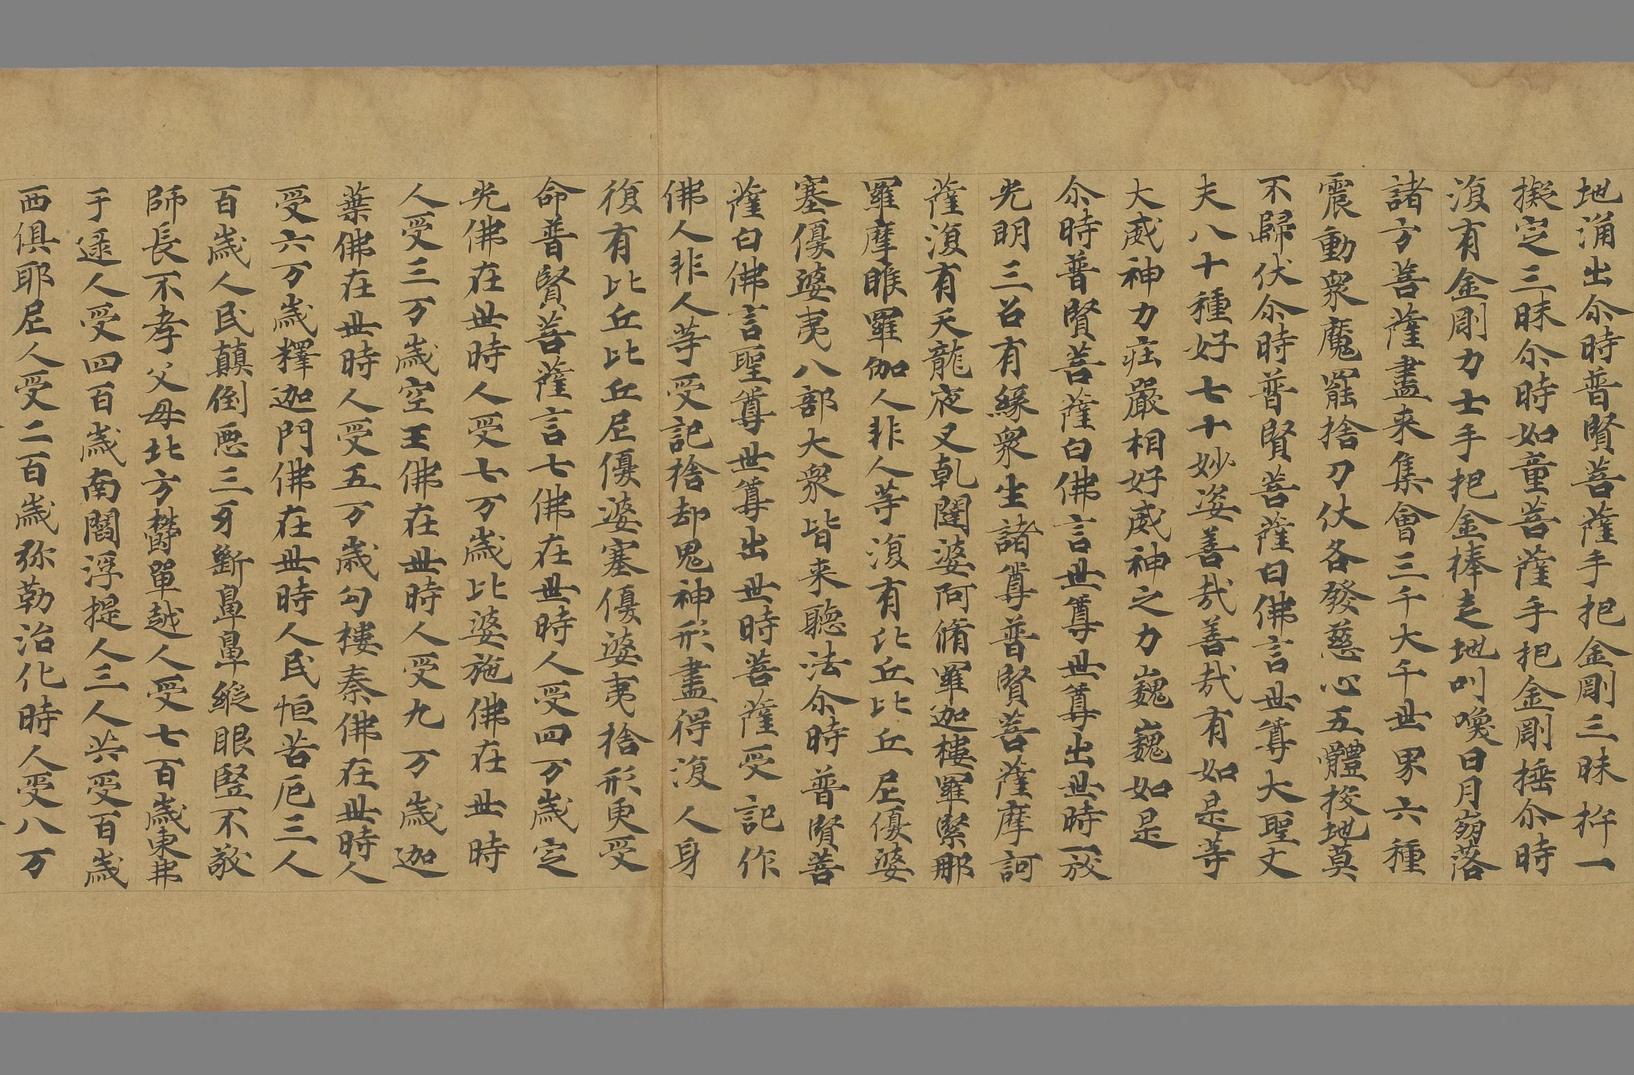 地涌出尒時普賢菩薩手把金剛三昧杵一
擬定三昧尒時如童菩薩手把金剛捶尒時
復有金剛力士手把金棒走地叫喚日月崩落
諸方菩薩盡来集會三千大千世界六種
震動衆魔罷捨刀仗各發慈心五體投地莫
不歸伏尒時普賢菩薩白佛言世尊大聖丈
夫八十種好七十妙姿善哉善哉有如是等
大威神力莊嚴相好威神之力巍巍如是
尒時普賢菩薩白佛言世尊世尊出世時放
光明三召有緣衆生諸尊普賢菩薩摩訶
薩復有天龍夜叉乹闥婆阿脩羅迦樓羅緊那
羅摩睺羅伽人非人等復有比丘比丘尼優婆
塞優婆夷八部大衆皆来聽法尒時普賢菩
薩白佛言聖尊世尊出世時菩薩受記作
佛人非人等受記捨却鬼神形盡得復人身
復有比丘比丘尼優婆塞優婆夷捨形更受
命普賢菩薩言七佛在世時人受四万歲定
光佛在世時人受七万歲比婆施佛在世時
人受三万歲空王佛在世時人受九万歲迦
葉佛在世時人受五万歲勾樓秦佛在世時人
受六万歲釋迦門佛在世時人民恒苦厄三人
百歲人民顛倒惡三牙斷鼻鼻縱眼竪不敬
師長不孝父母北方欝單越人受七百歲東弗
于逮人受四百歲南閻浮提人三人共受百歲
西俱耶尼人受二百歲弥勒治化時人受八万